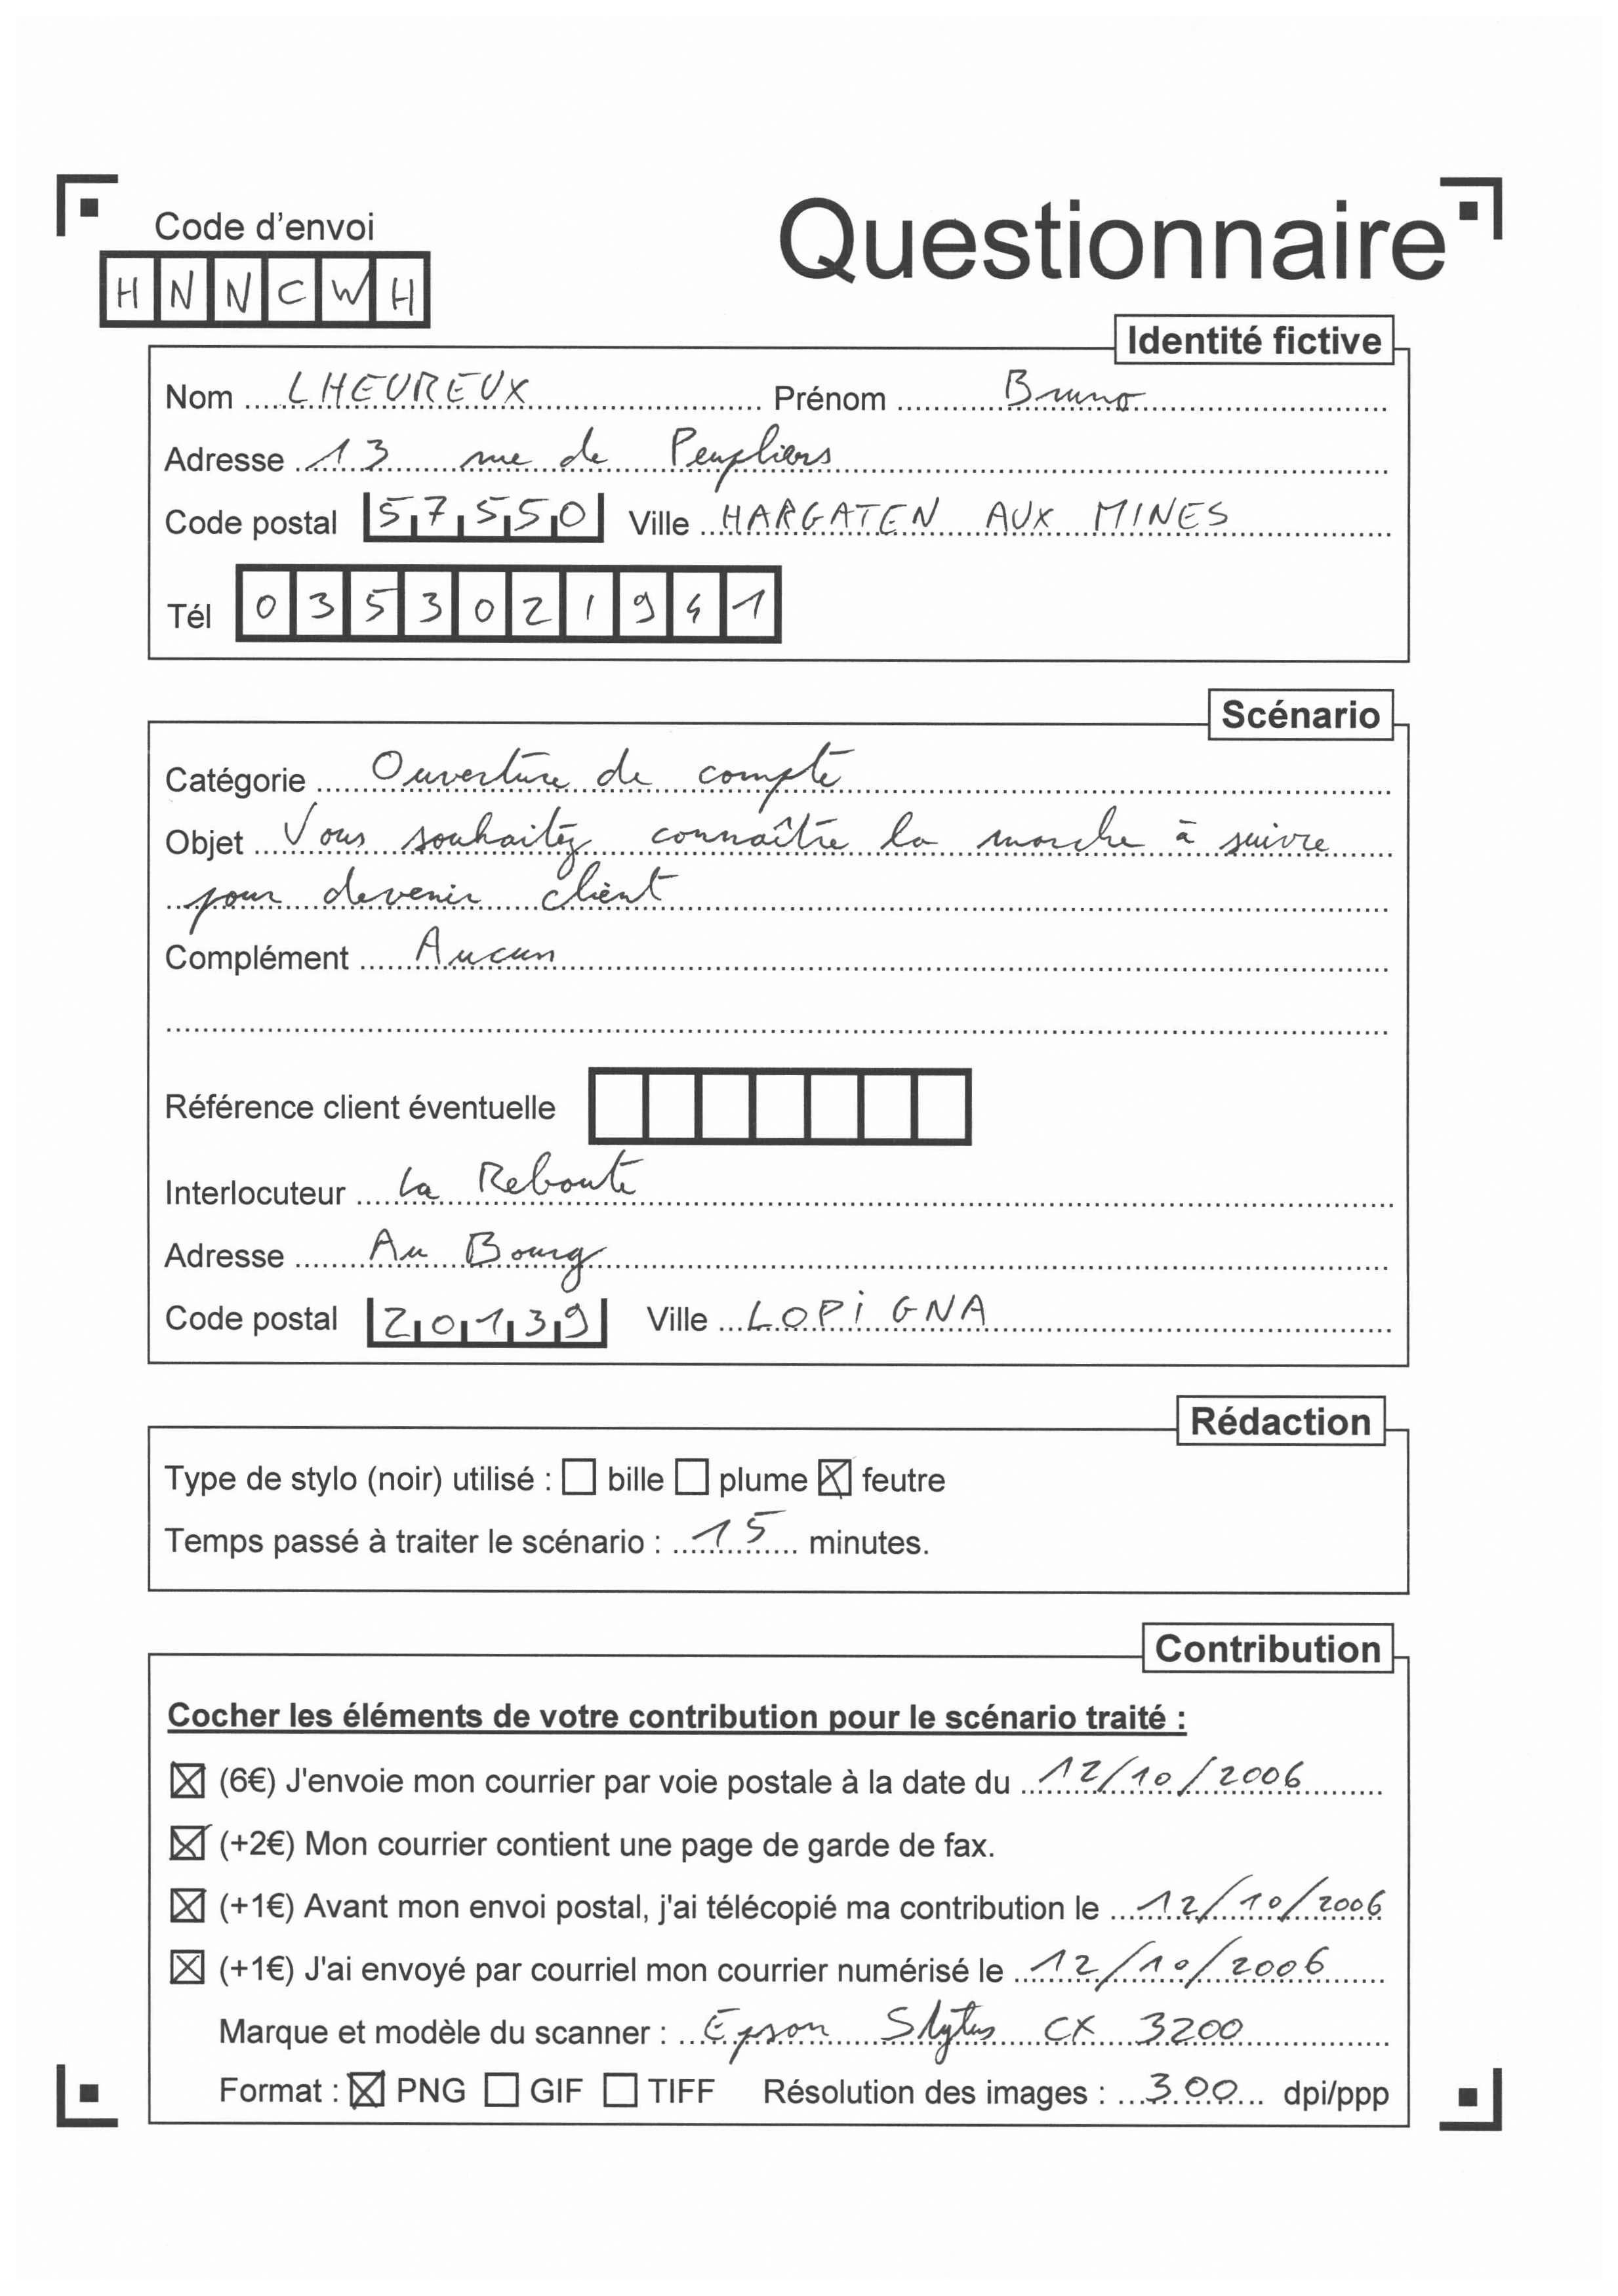 Code d'envoi
Questionnaire
HNNCWH
Identité fictive
Nom LHEUREUX Prénom Bruno
Adresse 13 rue de Peupliers
Code postal 57550 Ville HARGATEN AUX MINES
Tél 0353021941
Scénario
Catégorie Ouverture de compte
Objet Vous souhaitez connaître la marche à suivre
pour devenir client
Complément Aucun
Référence client éventuelle
Interlocuteur La Reboute
Adresse Au Bourg
Code postal 20139 Ville LOPIGNA
Rédaction
Type de stylo (noir) utilisé : ☐ bille ☐ plume ☒ feutre
Temps passé à traiter le scénario : 15 minutes.
Contribution
Cocher les éléments de votre contribution pour le scénario traité :
☒ (6€) J'envoie mon courrier par voie postale à la date du 12/10/2006
☒ (+2€) Mon courrier contient une page de garde de fax.
☒ (+1€) Avant mon envoi postal, j'ai télécopié ma contribution le 12/10/2006
☒ (+1€) J'ai envoyé par courriel mon courrier numérisé le 12/10/2006
Marque et modèle du scanner : Epson Slytus CX 3200
Format : ☒ PNG ☐ GIF ☐ TIFF Résolution des images : 300 dpi/ppp